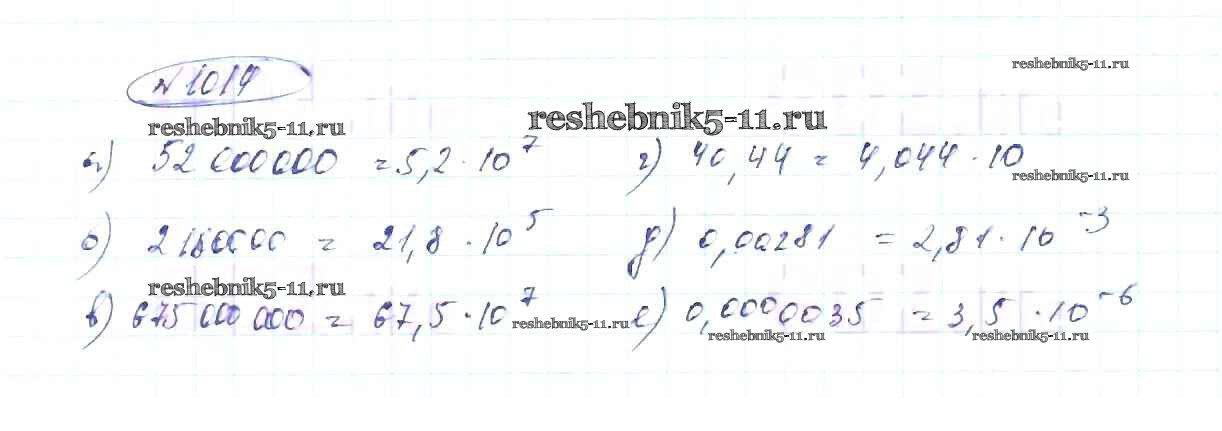 №1014
reshebnik5-11.ru
reshebnik5-11.ru
reshebnik5-11.ru
а) 52 000000 = 5,2 · 10⁷
г) 40,44 = 4,044 · 10
reshebnik5-11.ru
б) 2180000 = 21,8 · 10⁵
д) 0,00281 = 2,81 · 10⁻³
reshebnik5-11.ru
в) 675 000 000 = 67,5 · 10⁷
reshebnik5-11.ru
е) 0,0000035 = 3,5 · 10⁻⁶
reshebnik5-11.ru
reshebnik5-11.ru